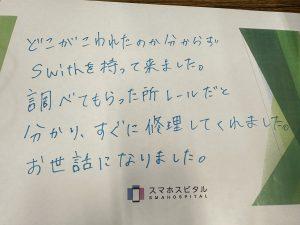 どこがこわれたのか分からず
Swithを持って来ました。
調べてもらった所レールだと
分かり、すぐに修理してくれました。
お世話になりました。
スマホスピタル
SMAHOSPITAL